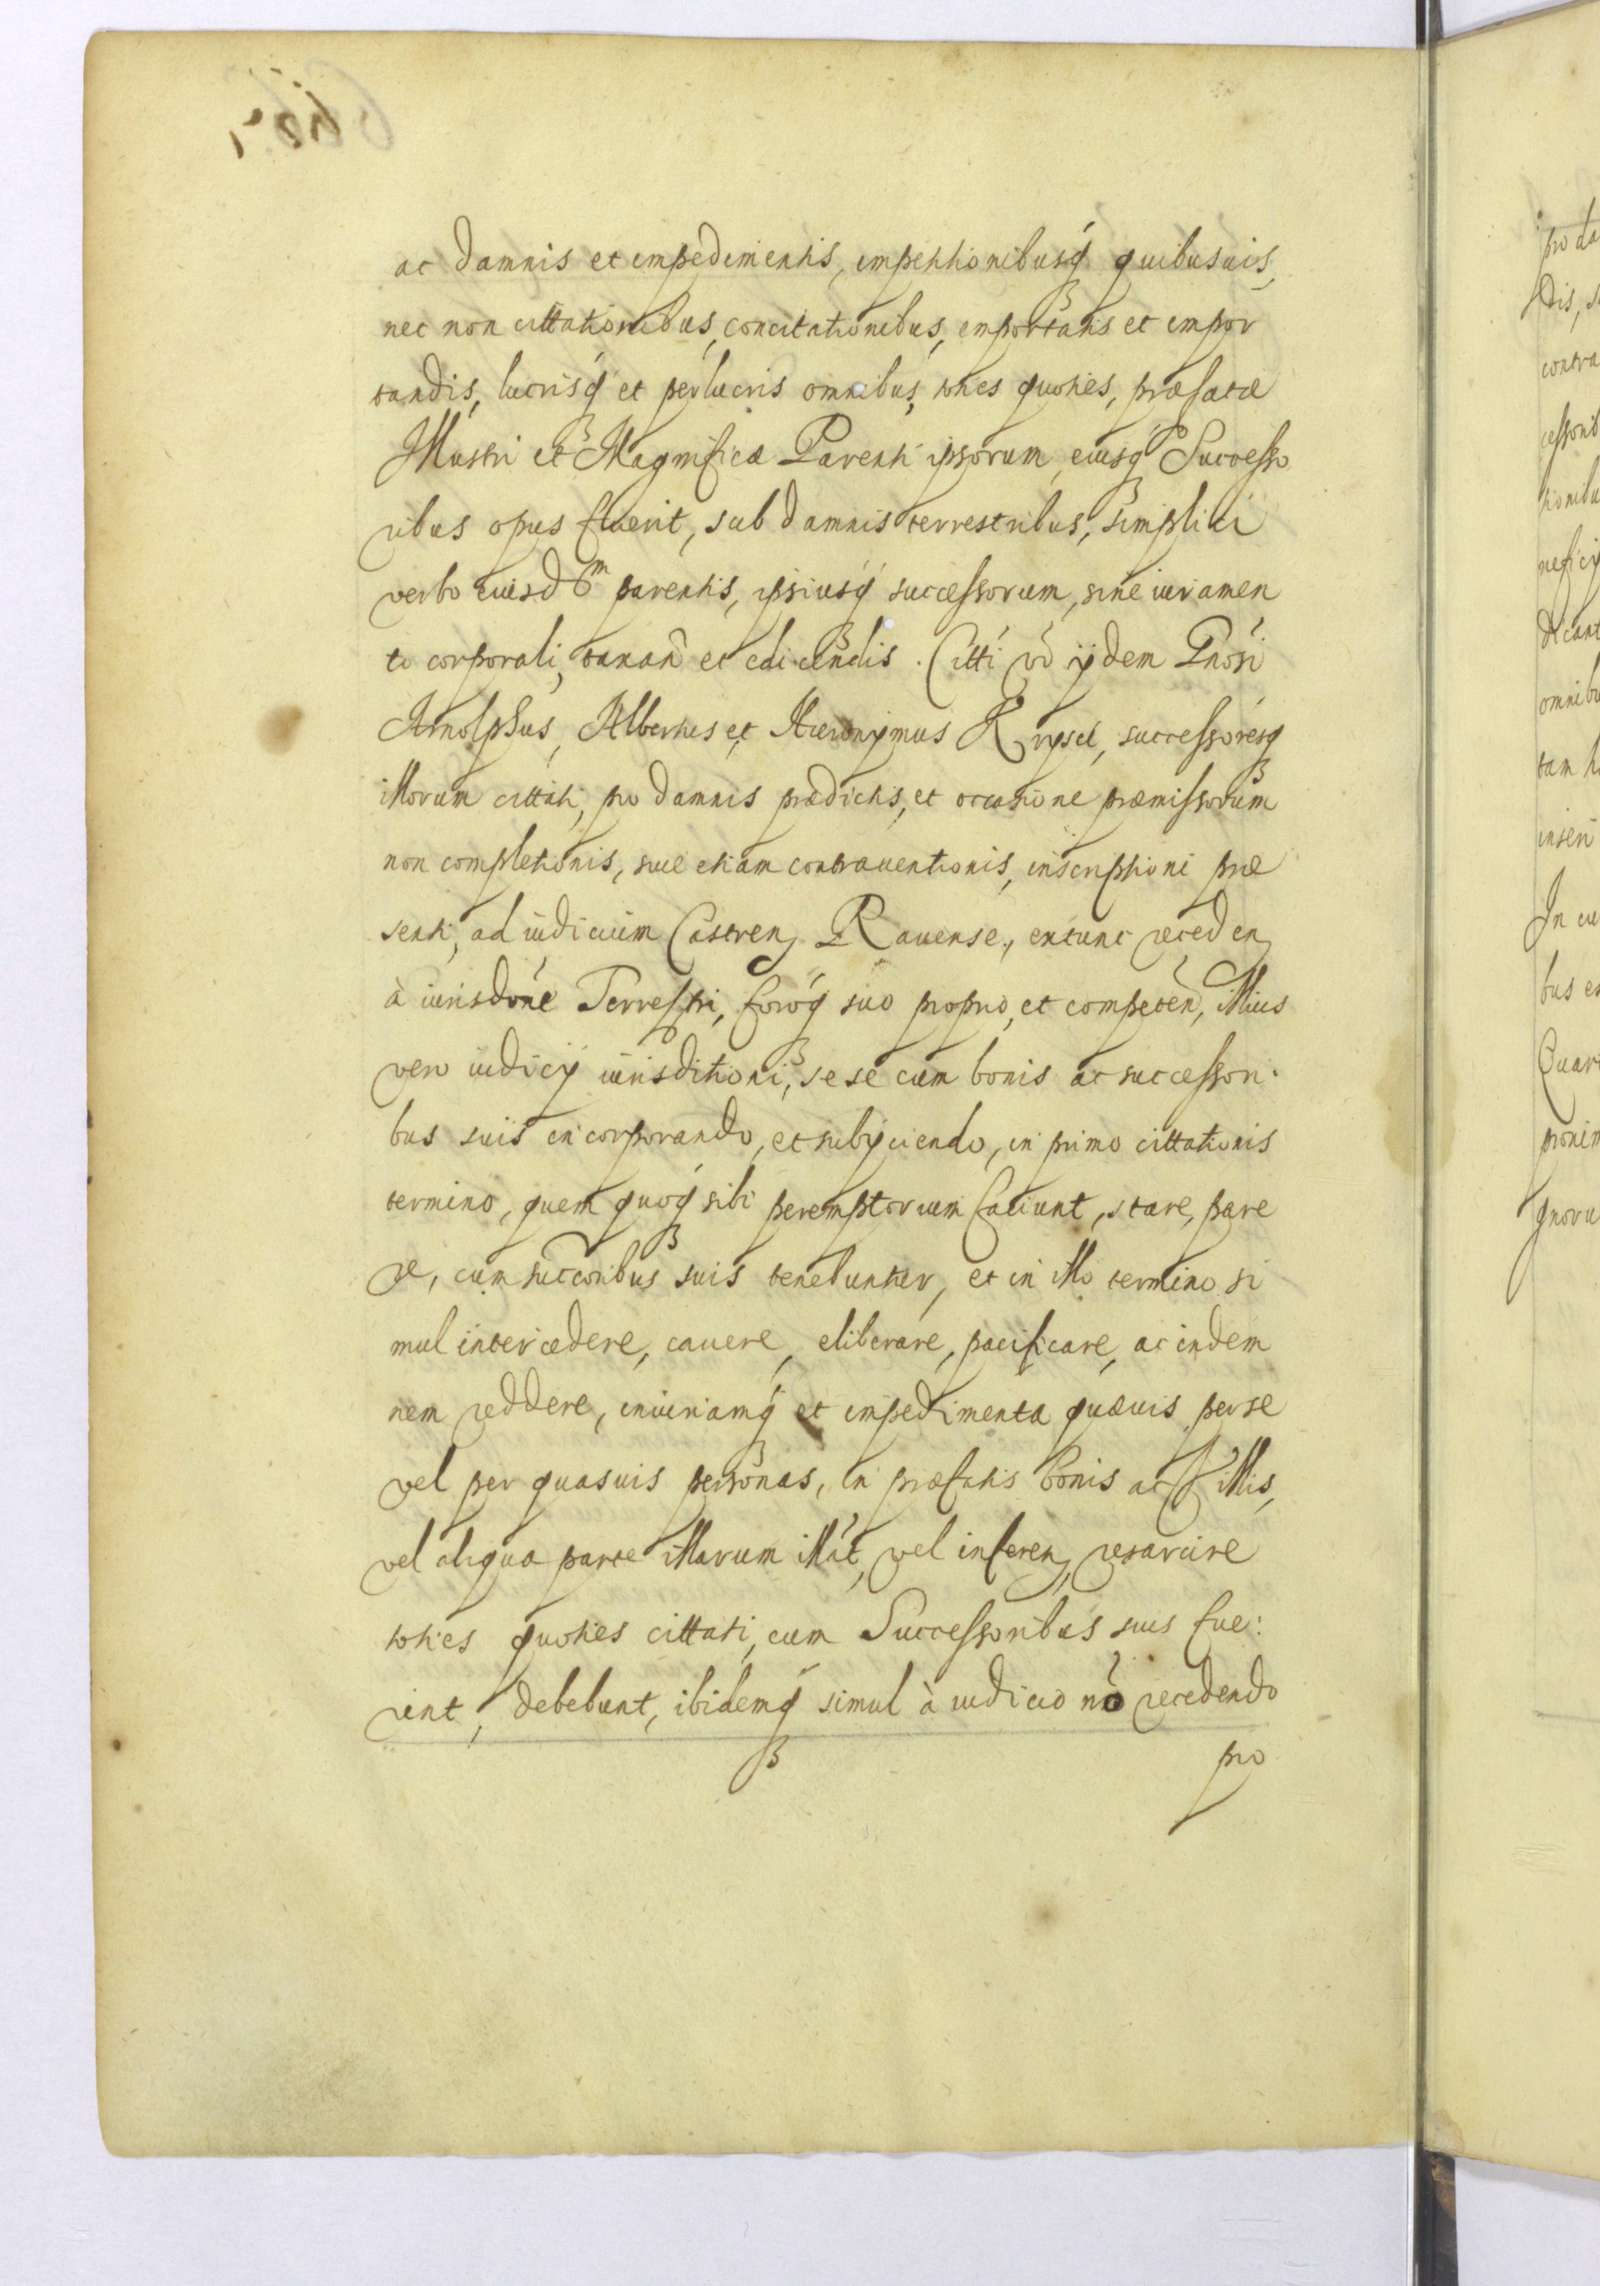 ac damnis et impedimentis, impetitionibusq3 quibusuis,
nec non cittationibus, concitationibus, importatis et impor
tandis, lucrisq3 et perlucris omnibus, toties quoties, præfatæ
Illustri et Magnificæ Parenti ipsorum, eiusq3 Successo
ribus opus fuerit, sub damnis terrestribus, simplici
verbo eiusd parentis, ipsiusq3 successorum, sine iuramen
to corporali, taxan̄ et edicendis. Citti vō ijdem Gnōsi
Arnolphus, Albertus et Hieronymus successoresq3
illorum cittati, pro damnis prædictis, et occasione præmissorum
non completionis, siue etiam contrauentionis, inscriptioni præ
senti, ad iudicium Castren Rauense, extunc receden
à iurisdōne Terrestri, foroq3 suo proprio, et competēn, illius
vero iudicij iurisditioni, sese cum bonis ac successori
bus suis incorporando, et subijciendo, in primo cittationis
termino, quem quoq3 sibi peremptorium faciunt, stare, pare
re, cum succōribus suis tenebuntur, et in illo termino si
mul intercedere, cauere, eliberare, pacificare, ac indem
nem reddere, iniuriamq3 et impedimenta quæuis per se
vel per quasuis personas, in præfatis bonis ac villis,
vel aliqua parte illarum illāt, vel inferen, resarcire
toties quoties cittati, cum Successoribus suis fue:
rint, debebunt, ibidemq3 simul à iudicio nō recedendo
pro
pro da
dis, s
contra
cessorib
tionibu
neficij
dicant
omnibu
tam h
inseri
In cu
bus es
Quar
ponim
gnoru